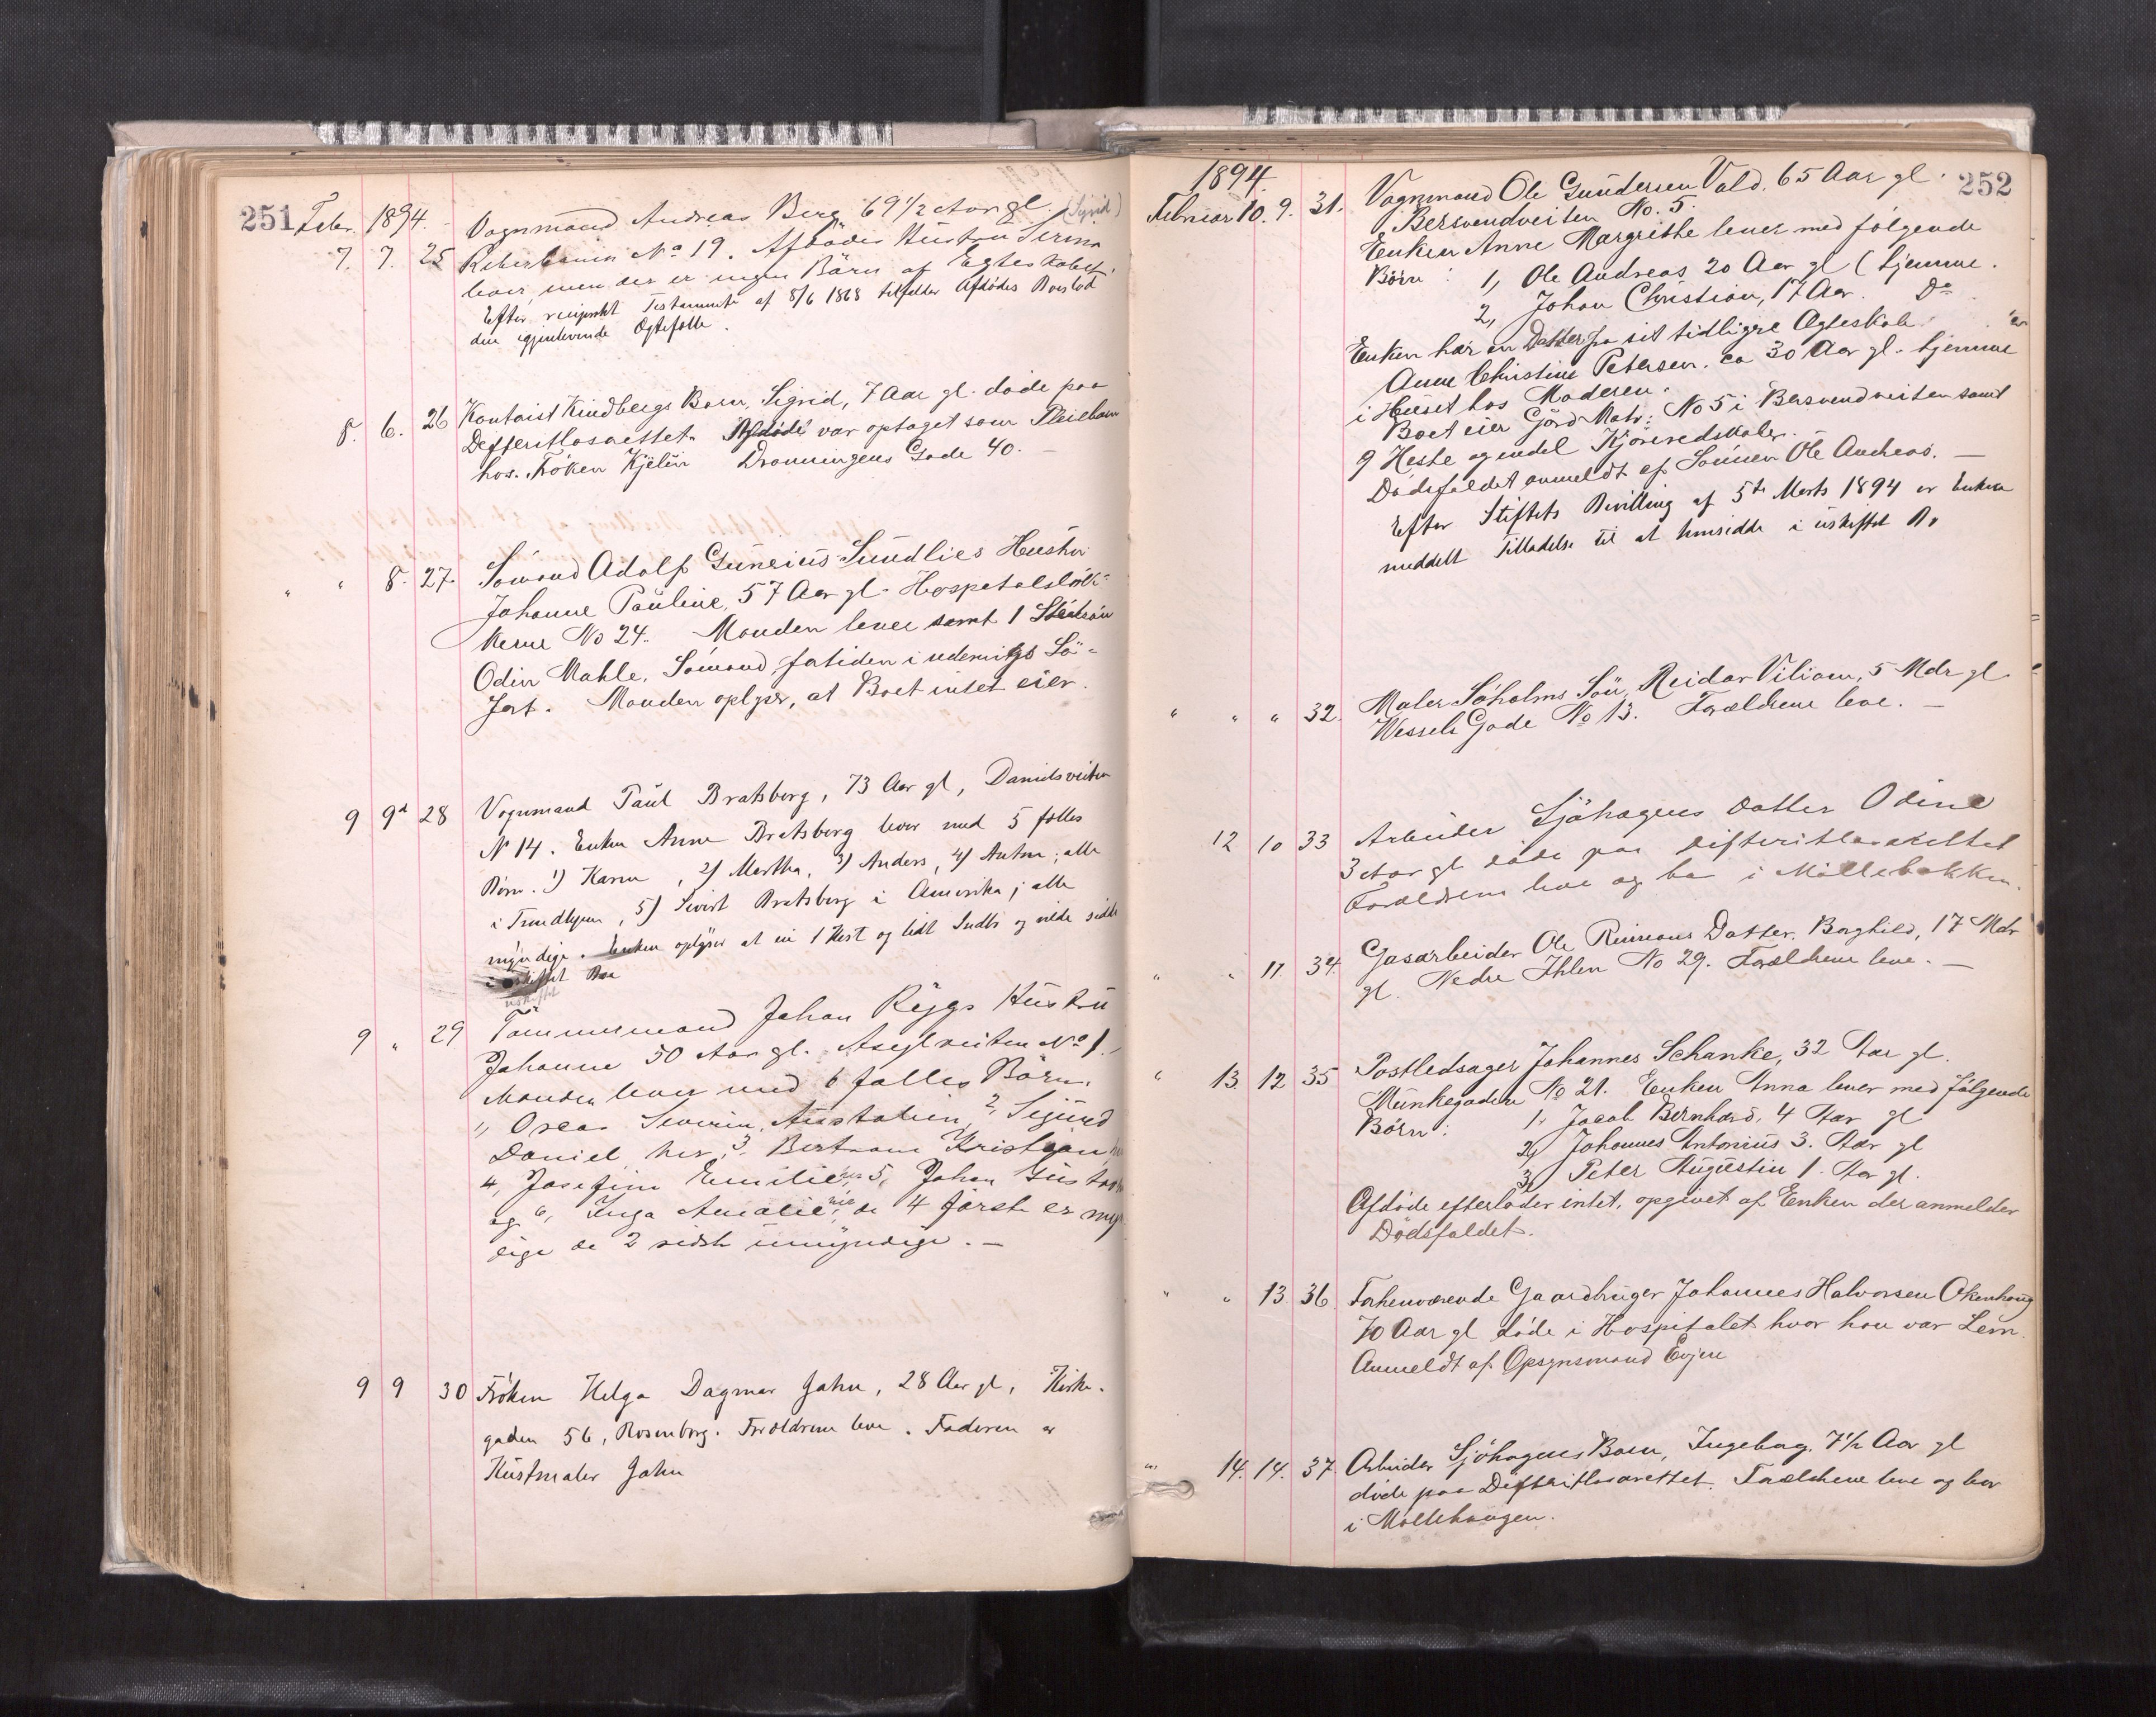 251 Febr. 1894.
7. 7. 25 Vognmand Andreas Berg, 69 1/2 Aar gl. (Sigrid)
No 19. Afdødes Hustru Serina
lever men der er ingen Börn af Egteskabet.
Efter reciprokt Testamente af 8/6 1868 tilfalder Afdødes Boeslod
den igjenlevende Ægtefælle.
8. 6. 26 Kontorist Kindbergs Barn, Sigrid, 7 Aar gl. døde paa
Deffteritlasarettet. Afdøde var optaget som Pleiebarn
hos Frøken Kjelin Dronningens Gade 40. —
" " 8. 27. Sömand Adolf Gunerius Sundlies Hustru
Johanne Pauline, 57 Aar gl. Hospitalslök-
kerne No 24. Manden lever samt 1 Stedsön
Odin Mahle, Sömand fortiden i udenrigs Sö-
fart. Manden oplyser, at Boet intet eier.
9 9d 28 Vognmand Paul Bratsberg, 73 Aar gl, Danielsveiten
N 14. Enken Anne Bratsberg lever med 5 fælles
Børn. 1) Karen, 2) Martha, 3) Anders, 4) Anton; alle
i Trondhjem, 5) Sivert Bratsberg i Amerika; alle
myndige. Enken oplyser at eie 1 Hest og lidt Indbo og vilde sidde
i uskiftet Boe
uskiftet
9 " 29 Tømmermand Johan Ryggs Hustru
Johanne 50 Aar gl. Asylveiten No 1. —
Manden lever med 6 fælles Börn.
1, Oscar Severin, Australien, 2, Sigurd
Daniel her, 3. Bertram Kristian
4, Josefine Emilie, 5, Johan Gustav
og 6, Inga Amalie, de 4 første er myn
dige de 2 sidste umyndige. —
9 9 30 Frøken Helga Dagmar Jahn, 28 Aar gl, Kirke-
gaden 56, Rosenborg. Forældrene leve. Faderen er
Kustmaler Jahn
1894. 252
Februar 10. 9. 31. Vognmand Ole Gundersen Vold, 65 Aar gl.
Bersvendveiten No. 5.
Enken Anne Margrethe lever med følgende
Børn: 1, Ole Andreas 20 Aar gl (hjemme.
2, Johan Christian, 17 Aar. Do
Enken har en Datter fra sit tidligere Ægteskab.
Anne Christine Petersen, ca 30 Aar gl. hjemme
i Huset hos Moderen.
Boet eier Gård Matr: No 5 i Bersvendveiten samt
9 Heste og endel Kjøreredskaber.
Dødsfaldet anmeldt af Sønnen Ole Andreas. —
Efter Stiftets Bevilling af 5te Marts 1894 er Enken
meddelt Tilladelse til at hensidde i uskiftet Bo
" " " 32. Maler Søholms Sön, Reidar Viliam, 5 Mdr gl.
Wessels Gade No 13. Forældrene leve. —
12 10 33 Arbeider Sjöhagens Datter Odine
3 Aar gl døde paa Difteritlasarettet
Forældrene leve og bo i Møllebakken.
" " 11 34. Gasarbeider Ole Reimans Datter, Borghild, 17 Mdr
gl. Nedre Ihlen No 29. Forældrene leve. —
" 13. 12 35 Postledsager Johannes Schanke, 32 Aar gl.
Munkegaden No 21. Enken Anna lever med følgende
Børn: 1, Jacob Bernhard, 4 Aar gl
2, Johannes Antonius 3. Aar gl
3, Peter Augustin 1. Aar gl.
Afdøde efterlader intet, opgivet af Enken der anmelder
Dødsfaldet.
" " 13 36. Forhenværende Gaardbruger Johannes Halvorsen Okenhaug
70 Aar gl døde i Hospitalet hvor han var Lem.
Anmeldt af Opsynsmand Evjen
" 14. 14. 37. Arbeider Sjöhagens Barn, Ingeborg, 7 1/2 Aar gl
døde paa Difteritlasarettet. Forældrene leve og bor
i Møllehaugen.